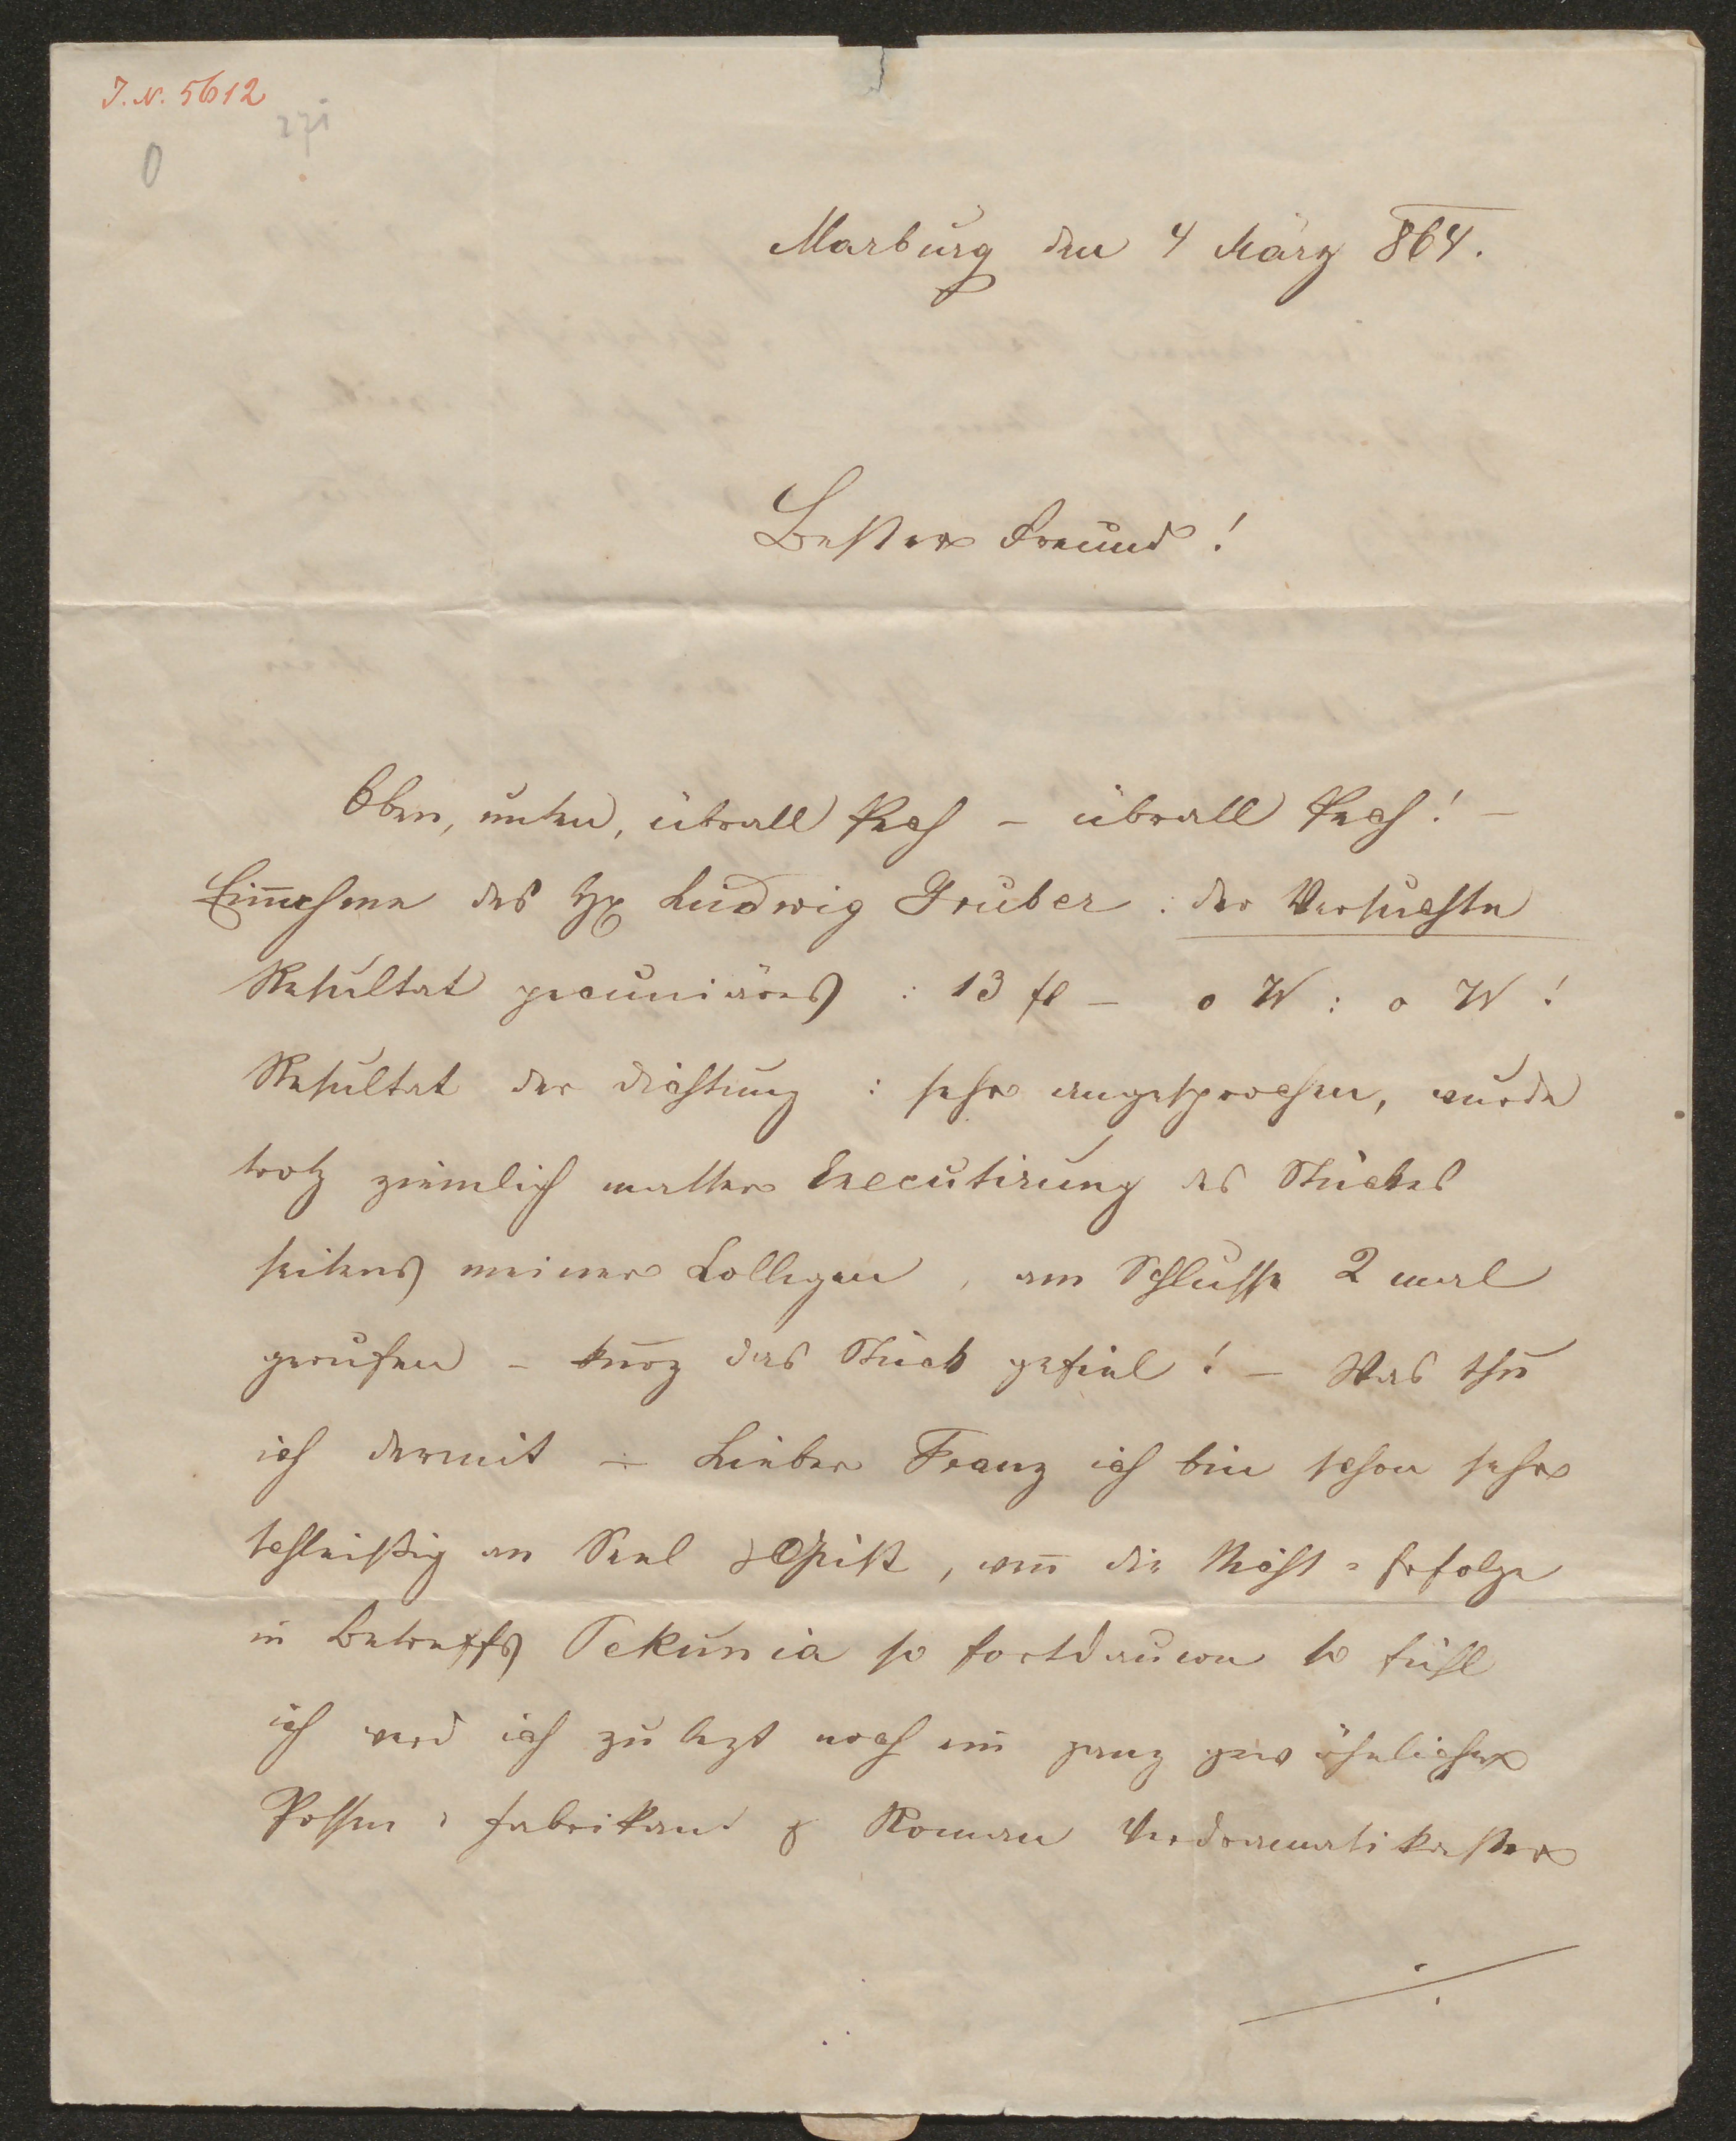 J. N. 5612
271
0
Marburg den 4 März 864.
Bester Freund!
Oben, unten, übrall Pech – übrall Pech! –
Einnahme des H Ludwig Gruber: der Versuchte
Resultat pecuniäres : 13 fl – o W: o W!
Resultat der Dichtung : sehr angesprochen, wurde
trotz ziemlich matter Executirung des Stückes
seitens meiner Collegen, am Schlusse 2 mal
gerufen – kurz das Stück gefiel! – Was thu
ich damit – Lieber Franz ich bin schon sehr
schleißig an Seel & Geist, wen̄ die Nicht-Erfolge
in Betreffs Pekunia so fortdauern so fühl
ich werd ich zu lezt noch ein ganz gewöhnlicher
Possen-Fabrikant & Roman Verdramatikaster